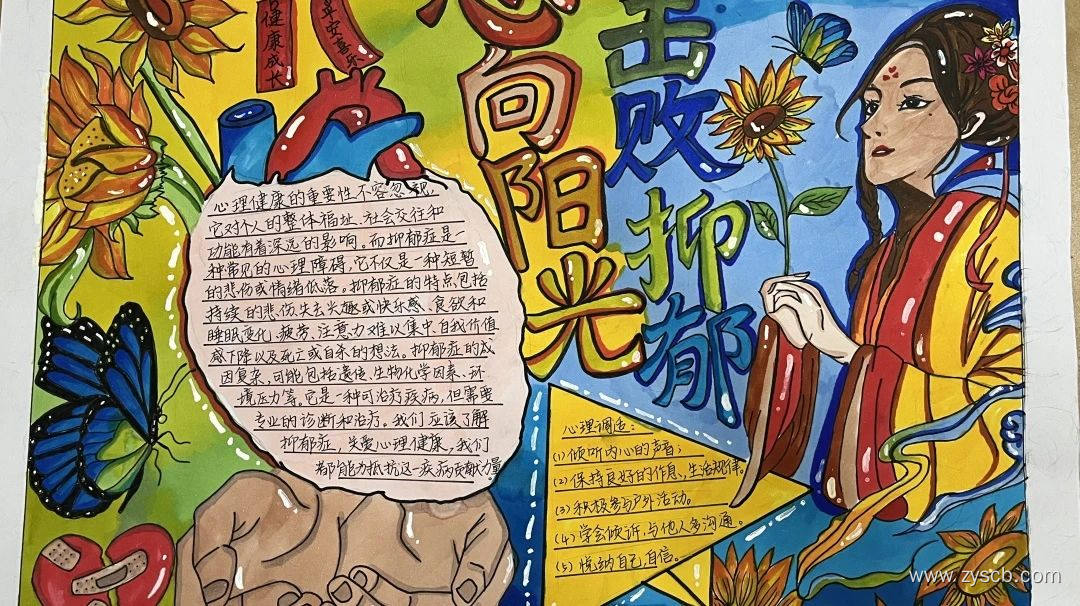 健康成长
平安喜乐
向阳光
击败抑郁
心理健康的重要性不容忽视
它对个人的整体福祉、社会交往和
功能有着深远的影响。而抑郁症是一
种常见的心理障碍,它不仅是一种短暂
的悲伤或情绪低落。抑郁症的特点包括
持续的悲伤,失去兴趣或快乐感、食欲和
睡眠变化、疲劳、注意力难以集中、自我价值
感下降以及死亡或自杀的想法。抑郁症的成
因复杂,可能包括遗传、生物化学因素、环
境压力等,它是一种可治疗疾病,但需要
专业的诊断和治疗。我们应该了解
抑郁症,关爱心理健康,我们
都能为抵抗这一疾病贡献力量
心理调适:
(1)倾听内心的声音;
(2)保持良好的作息、生活规律。
(3)积极参与户外活动。
(4)学会倾诉,与他人多沟通。
(5)悦纳自己,自信。
www.zyscb.com